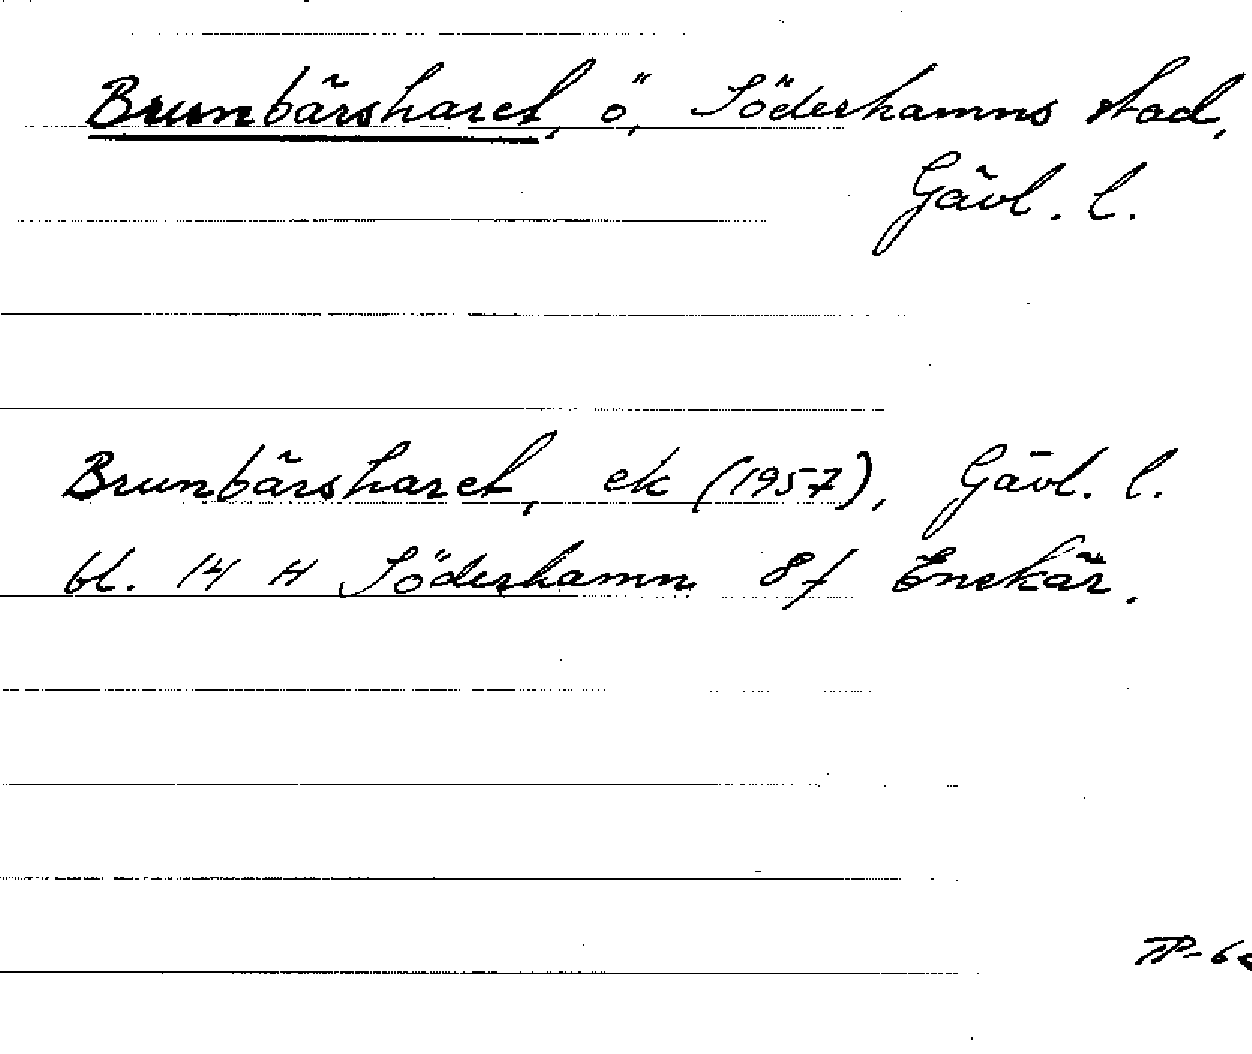 Brunbärsharet, ö, Söderhamns stad,
Gävl. l.
Brunbärsharet, ek (1957), Gävl. l.
bl. 14 H Söderhamn 8f Enskär.